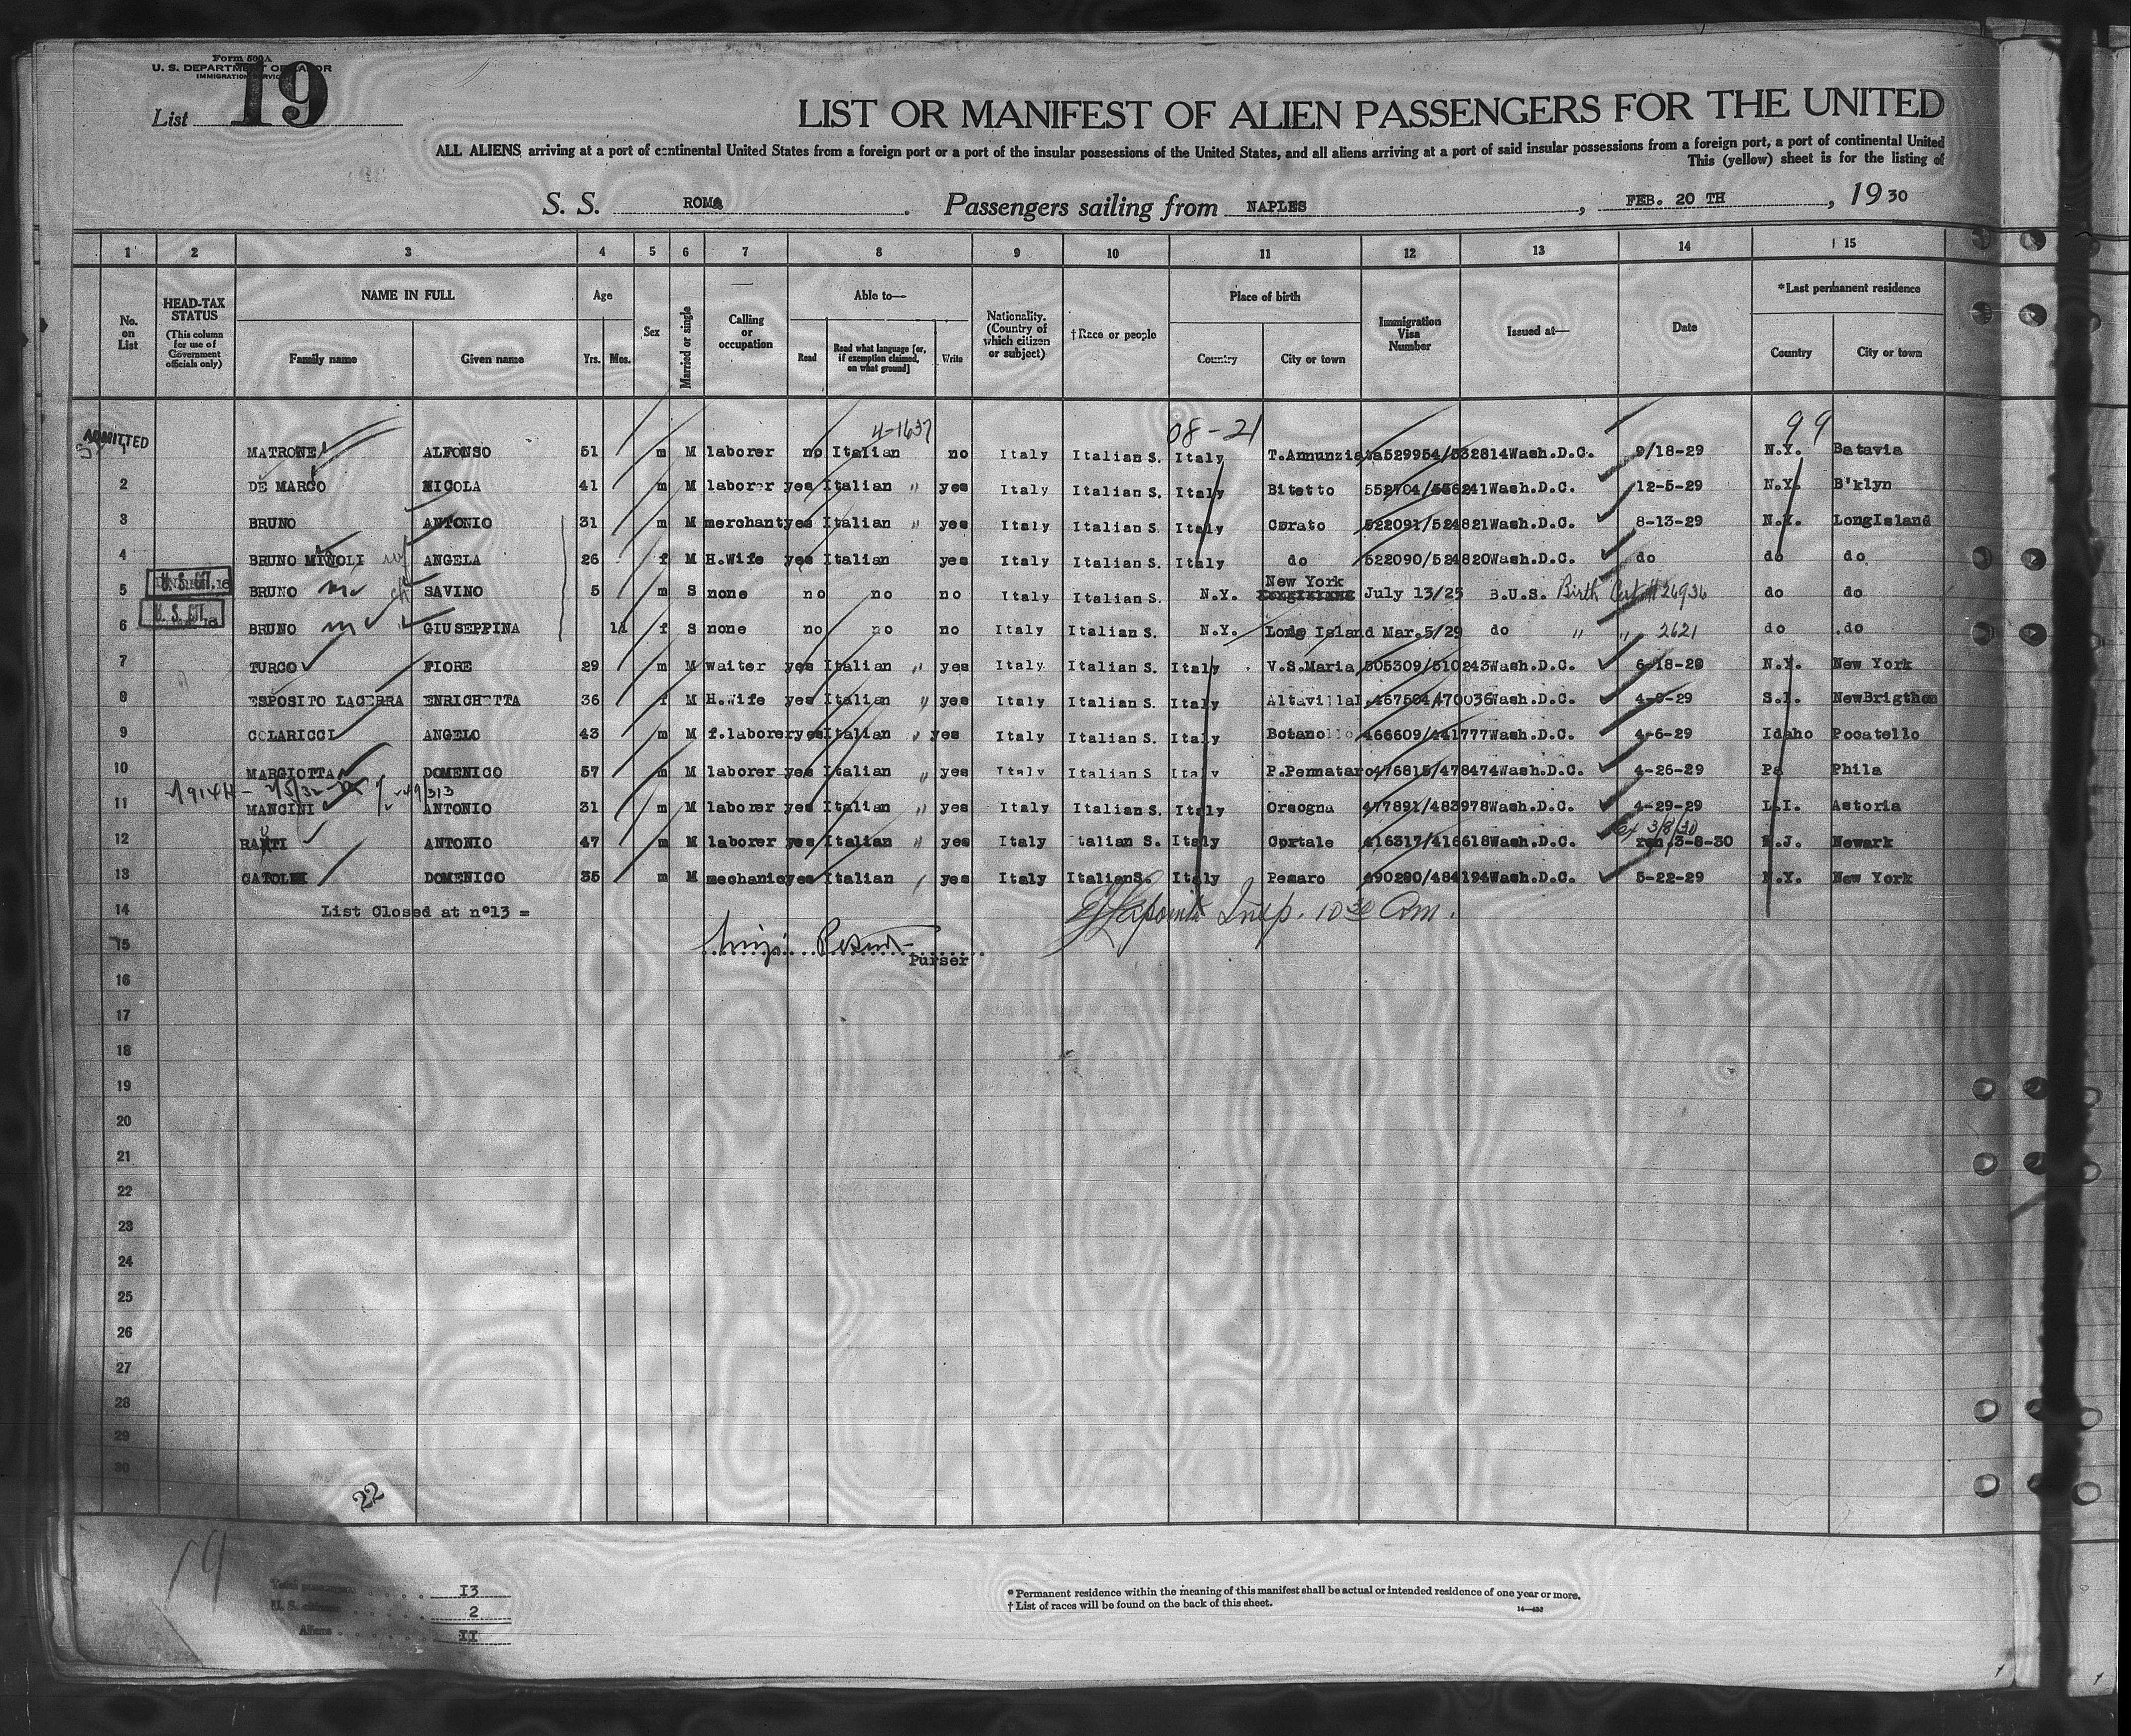 Form 500A
U. S. DEPARTMENT OF LABOR
IMMIGRATION SERVICE
List 19
LIST OR MANIFEST OF ALIEN PASSENGERS FOR THE UNITED
ALL ALIENS arriving at a port of continental United States from a foreign port or a port of the insular possessions of the United States, and all aliens arriving at a port of said insular possessions from a foreign port, a port of continental United
This (yellow) sheet is for the listing of
S. S. ROMA . Passengers sailing from NAPLES , FEB. 20 TH , 19 30
1 2 3 4 5 6 7 8 9 10 11 12 13 14 15
No. on List
HEAD-TAX STATUS
(This column for use of Government officials only)
NAME IN FULL
Family name Given name
Age
Yrs. Mos.
Sex
Married or single
Calling or occupation
Able to—
Read Read what language [or, if exemption claimed, on what ground] Write
Nationality. (Country of which citizen or subject)
† Race or people
Place of birth
Country City or town
Immigration Visa Number
Issued at—
Date
*Last permanent residence
Country City or town
4-1637 08-21 99
ADMITTED
1 MATRONE ALFONSO 51 m M laborer no Italian no Italy Italian S. Italy T.Annunziata 529954/532814 Wash.D.C. 9/18-29 N.Y. Batavia
2 DE MARCO NICOLA 41 m M laborer yes Italian " yes Italy Italian S. Italy Bitetto 552704/556241 Wash.D.C. 12-5-29 N.Y. B'klyn
3 BRUNO ANTONIO 31 m M merchant yes Italian " yes Italy Italian S. Italy Corato 522091/524821 Wash.D.C. 8-13-29 N.Y. LongIsland
4 BRUNO MINOLI wf ANGELA 26 f M H.Wife yes Italian yes Italy Italian S. Italy do 522090/524820 Wash.D.C. do do do
U. S. CIT.
5 BRUNO SAVINO 5 m S none no no no Italy Italian S. N.Y. New York July 13/25 B.U.S. Birth Cert # 26936 do do
U. S. CIT.
6 BRUNO GIUSEPPINA 11 f S none no no no Italy Italian S. N.Y. Long Island Mar.5/29 do " " 2621 do do
7 TURCO FIORE 29 m M waiter yes Italian " yes Italy Italian S. Italy V.S.Maria 505309/510243 Wash.D.C. 6-18-29 N.Y. New York
8 ESPOSITO LACERRA ENRICHETTA 36 f M H.Wife yes Italian " yes Italy Italian S. Italy AltavillaI. 467504/470036 Wash.D.C. 4-9-29 S.I. NewBrigthon
9 COLARICCI ANGELO 43 m M f.laborer yes Italian " yes Italy Italian S. Italy 466609/441777 Wash.D.C. 4-6-29 Idaho Pocatello
10 MARGIOTTA DOMENICO 57 m M laborer yes Italian " yes Italy Italian S Italy P.Permataro 476815/478474 Wash.D.C. 4-26-29 Pa Phila
11 MANCINI ANTONIO 31 m M laborer yes Italian " yes Italy Italian S. Italy Orsogna 477891/483978 Wash.D.C. 4-29-29 L.I. Astoria
Ex 3/8/30
12 ANTONIO 47 m M laborer yes Italian " yes Italy Italian S. Italy Cortale 416317/416618 Wash.D.C. ren.3-8-30 N.J. Newark
13 DOMENICO 35 m M mechanic yes Italian yes Italy ItalianS. Italy Pesaro 490290/484194 Wash.D.C. 5-22-29 N.Y. New York
14 List Closed at n°13 = Insp. 10 30
15
Purser
16
17
18
19
20
21
22
23
24
25
26
27
28
29
30
22
19
Total passengers 13
U. S. citizens 2
Aliens 11
* Permanent residence within the meaning of this manifest shall be actual or intended residence of one year or more.
† List of races will be found on the back of this sheet.